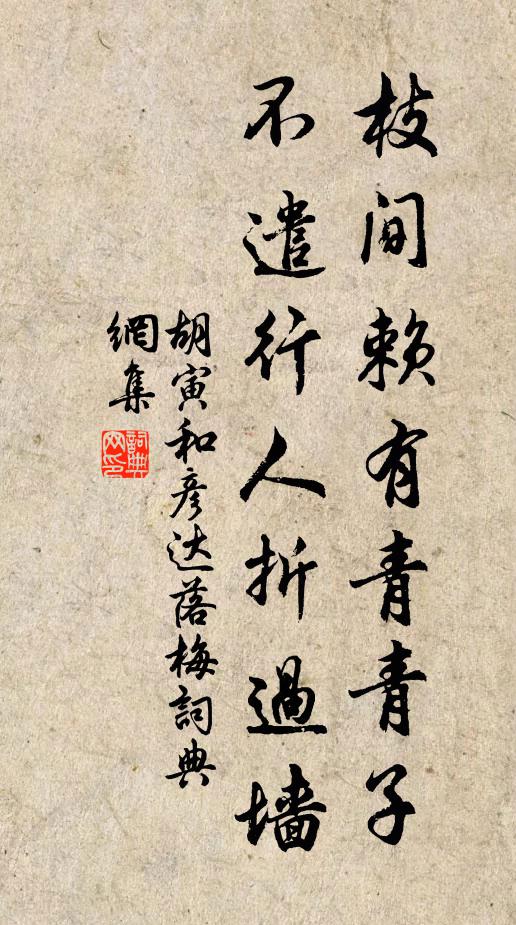 枝间赖有青青子
不遣行人折過墙
胡寅和彦达落梅詞典
網集
詞典网印